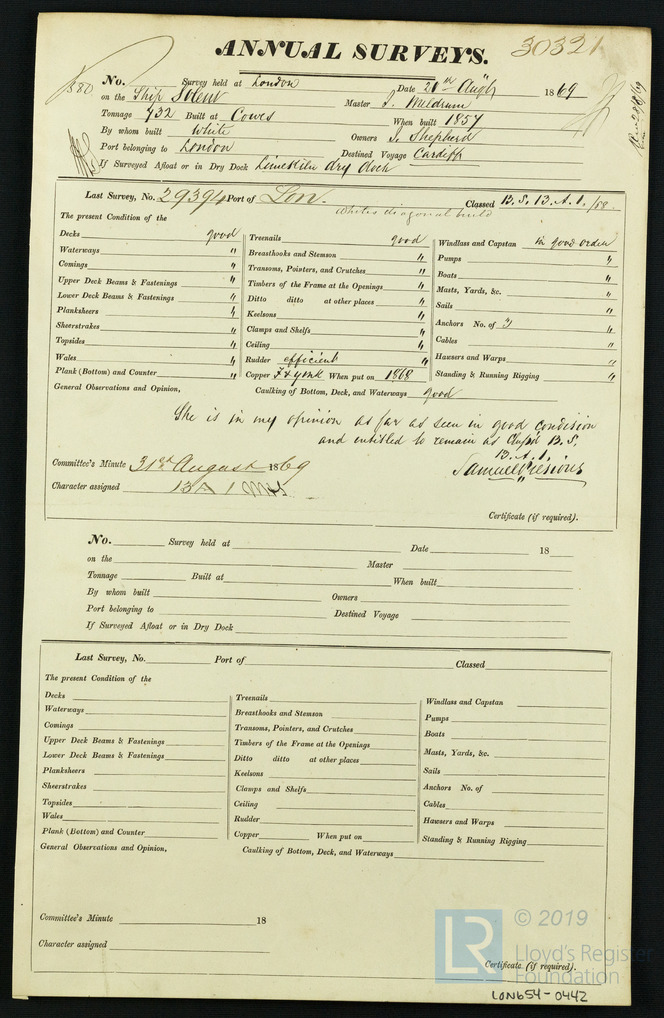 ANNUAL SURVEYS. 30321
No. Survey held at London Date 21th Aug 1869
on the Ship Solent Master J. Meldrum
Tonnage 432 Built at Cowes When built 1857
By whom built White Owners J. Shepherd
Port belonging to London Destined Voyage Cardiff
If Surveyed Afloat or in Dry Dock Limekiln dry dock
Last Survey, No. 29394 Port of Lon. Classed
White's diagonal build
The present Condition of the
Decks good
Waterways "
Comings "
Upper Deck Beams & Fastenings "
Lower Deck Beams & Fastenings "
Planksheers "
Sheerstrakes "
Topsides "
Wales "
Plank (Bottom) and Counter "
Treenails good
Breasthooks and Stemson "
Transoms, Pointers, and Crutches "
Timbers of the Frame at the Openings "
Ditto ditto at other places "
Keelsons "
Clamps and Shelfs "
Ceiling "
Rudder efficient "
Copper F & y m When put on 1868
Windlass and Capstan in good order
Pumps "
Boats "
Masts, Yards, &c. "
Sails "
Anchors No. of 3 "
Cables "
Hawsers and Warps "
Standing & Running Rigging "
General Observations and Opinion, Caulking of Bottom, Deck, and Waterways good
She is in my opinion as far as seen in good condition
and entitled to remain as Class'd B.S.
B.A.1.
Committee's Minute 31st August 1869
Samuel
Character assigned BA 1
Certificate (if required).
No. Survey held at Date 18
on the Master
Tonnage Built at When built
By whom built Owners
Port belonging to Destined Voyage
If Surveyed Afloat or in Dry Dock
Last Survey, No. Port of Classed
The present Condition of the
Decks
Waterways
Comings
Upper Deck Beams & Fastenings
Lower Deck Beams & Fastenings
Planksheers
Sheerstrakes
Topsides
Wales
Plank (Bottom) and Counter
Treenails
Breasthooks and Stemson
Transoms, Pointers, and Crutches
Timbers of the Frame at the Openings
Ditto ditto at other places
Keelsons
Clamps and Shelfs
Ceiling
Rudder
Copper When put on
Windlass and Capstan
Pumps
Boats
Masts, Yards, &c.
Sails
Anchors No. of
Cables
Hawsers and Warps
Standing & Running Rigging
General Observations and Opinion, Caulking of Bottom, Deck, and Waterways
Committee's Minute 18
Character assigned
Certificate (if required).
LR © 2019
Lloyd's Register
Foundation
LON654-0442